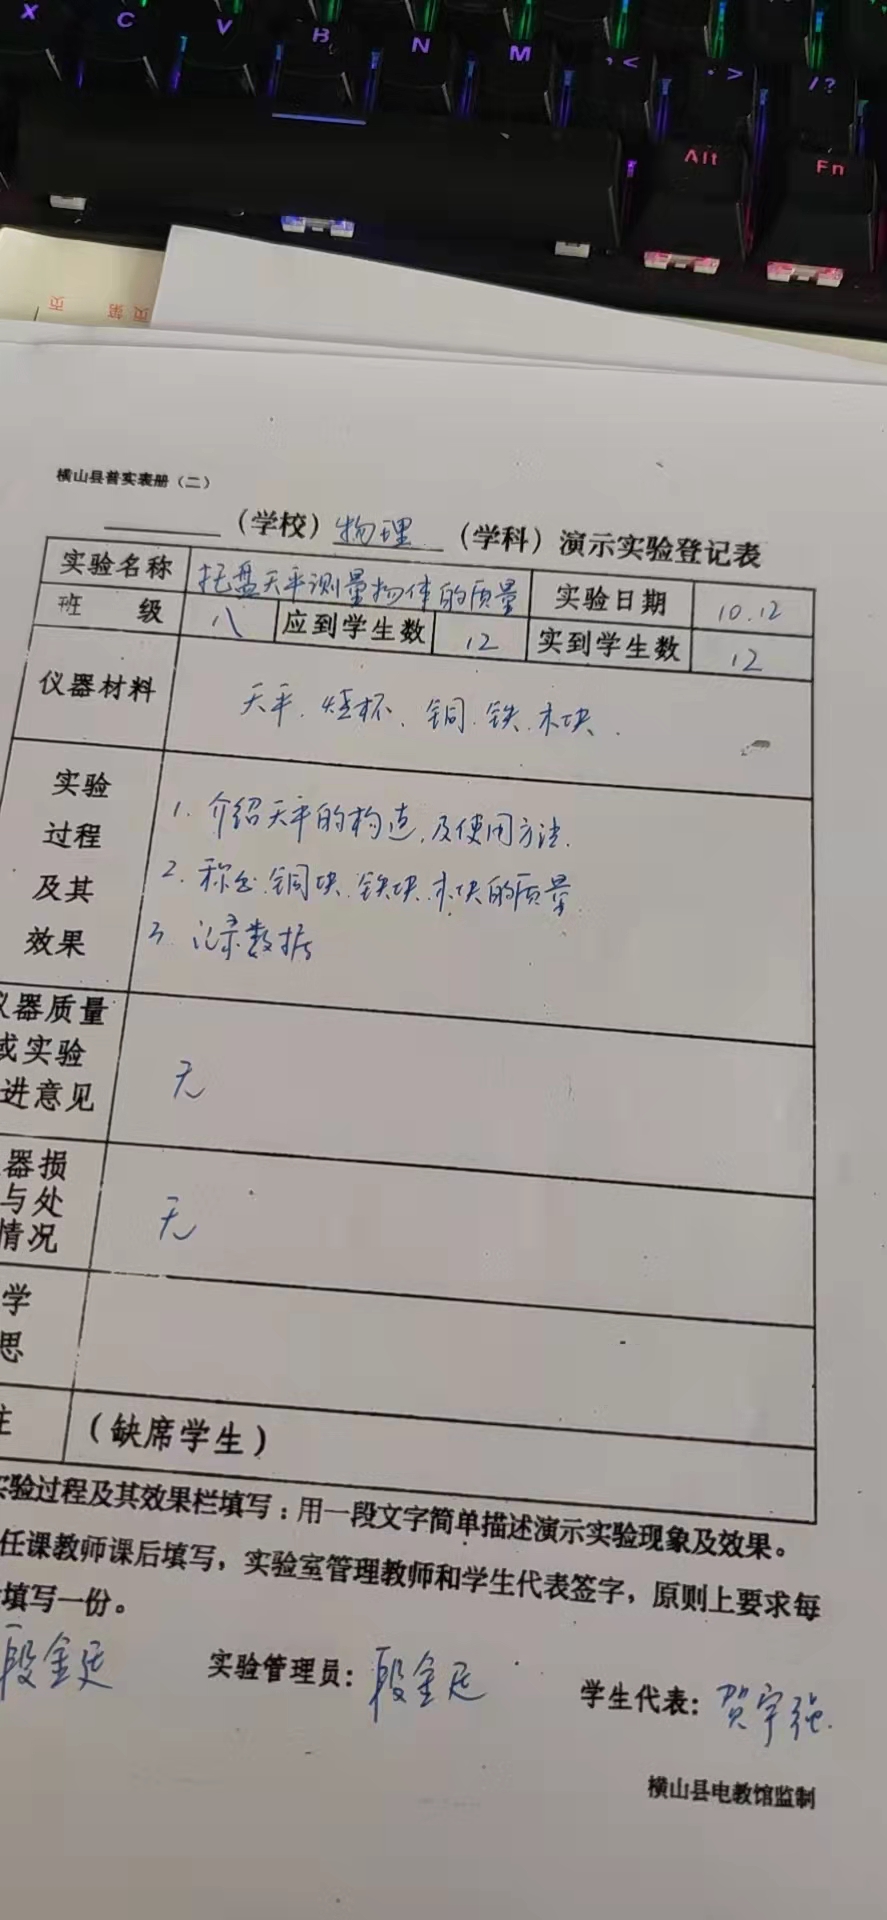 X C V B N M , < . > / ?
Alt Fn
页 第 页
横山县普实表册（二）
（学校）物理（学科）演示实验登记表
实验名称 托盘天平测量物体的质量 实验日期 10.12
班 级 八 应到学生数 12 实到学生数 12
仪器材料 天平、烧杯、铜、铁、木块.
实验
过程
及其
效果
1. 介绍天平的构造,及使用方法.
2. 称出铜块、铁块、木块的质量.
3. 记录数据
仪器质量
或实验
进意见
无
器损
与处
情况
无
学
思
注 （缺席学生）
实验过程及其效果栏填写：用一段文字简单描述演示实验现象及效果。
任课教师课后填写，实验室管理教师和学生代表签字，原则上要求每
填写一份。
段金廷 实验管理员：段金廷 学生代表：贺宇强.
横山县电教馆监制